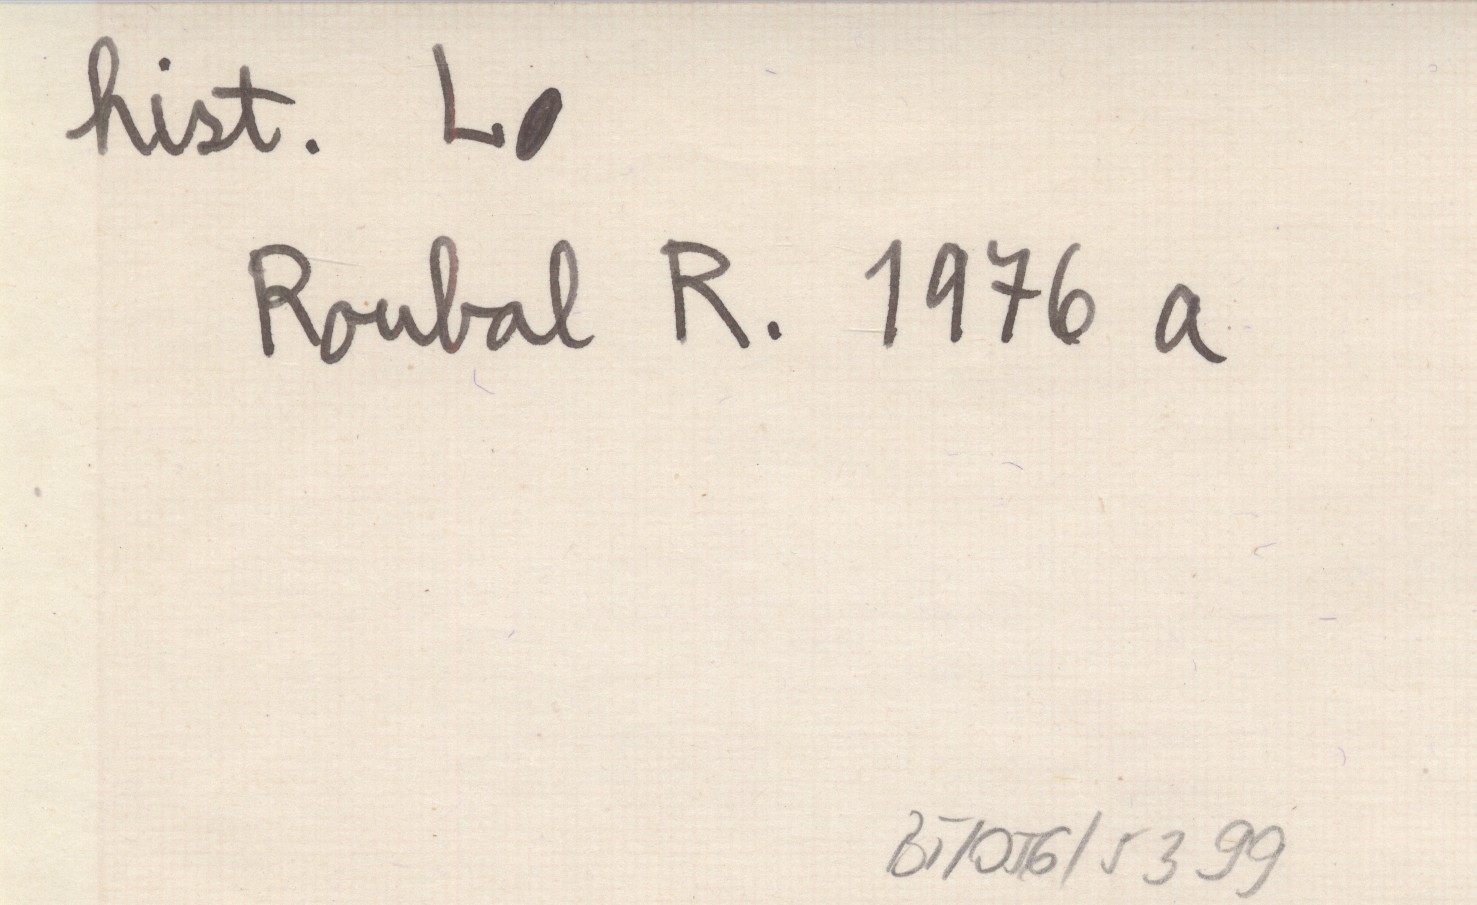 hist. Lo
Roubal R. 1976 a
BI/056/5399